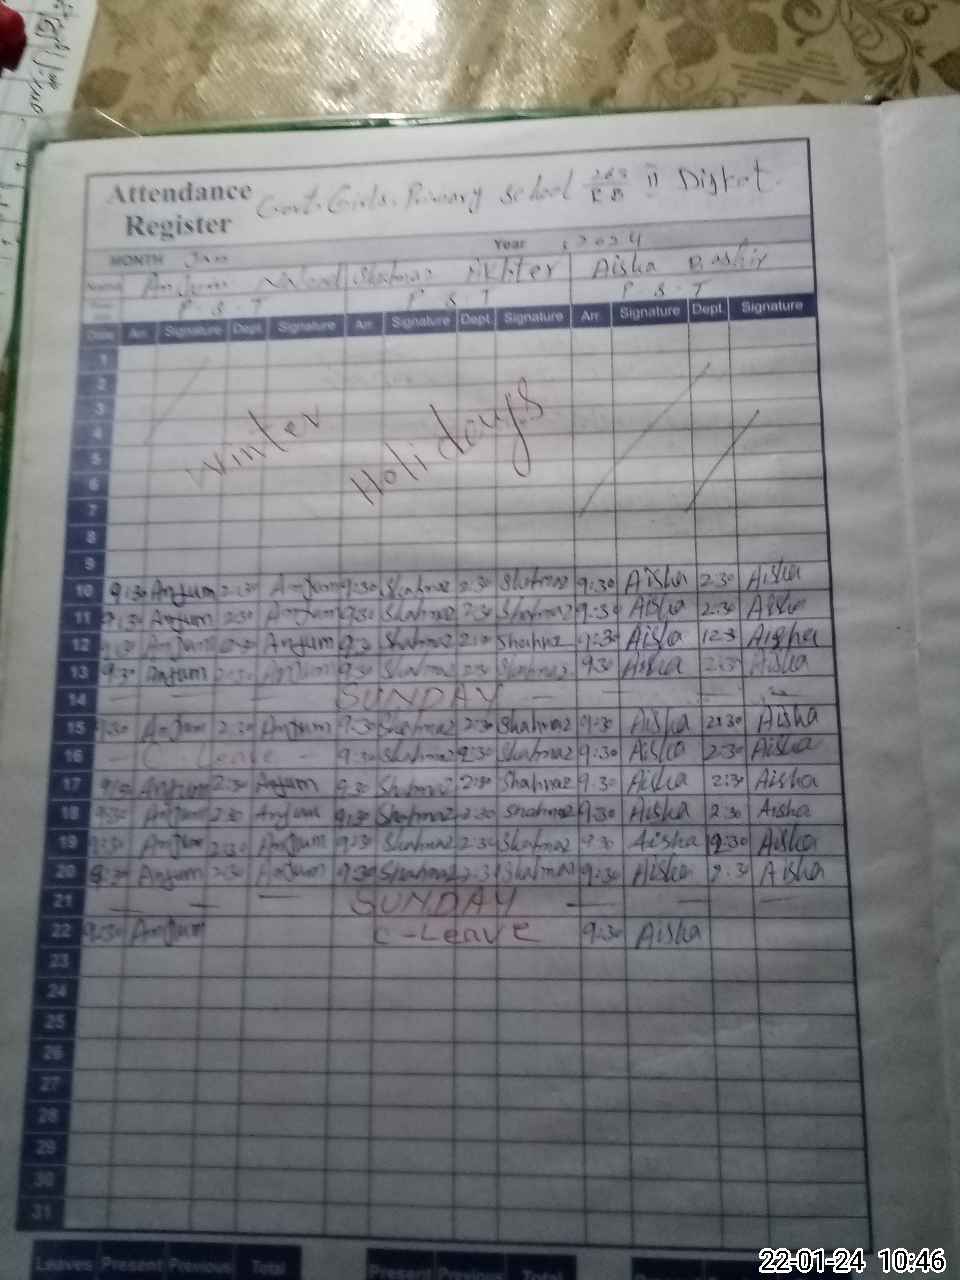 Attendance Register Govt. Girls. Primary School II
MONTH Jan Year 2024
Name Anjum Shahnaz Akhter Aisha Bashir
P.S.T P.S.T P.S.T
Date Arr. Signature Dept. Signature Arr. Signature Dept. Signature Arr. Signature Dept. Signature
1
2
3
4
Winter Holidays
5
6
7
8
9
10 9:30 Anjum 2:30 Anjum 9:30 Shahnaz 2:30 Shahnaz 9:30 Aisha 2:30 Aisha
11 9:30 Anjum 2:30 Anjum 9:30 Shahnaz 2:30 Shahnaz 9:30 Aisha 2:30 Aisha
12 Anjum Anjum 9:3 Shahnaz Shahnaz 9:30 Aisha 12:3 Aisha
13 9:30 Anjum 2:30 Anjum 9:30 Shahnaz 2:30 Shahnaz 9:30 Aisha 2:30 Aisha
14 SUNDAY
15 9:30 Anjum 2:30 Anjum 9:30 Shahnaz 2:30 Shahnaz 9:30 Aisha 2:30 Aisha
16 C Leave 9:30 Shahnaz 2:30 Shahnaz 9:30 Aisha 2:30 Aisha
17 9:30 Anjum 2:30 Anjum 9:30 Shahnaz 2:30 Shahnaz 9:30 Aisha 2:30 Aisha
18 9:30 Anjum 2:30 Anjum 9:30 Shahnaz 2:30 Shahnaz 9:30 Aisha 2:30 Aisha
19 9:30 Anjum 2:30 Anjum 9:30 Shahnaz 2:30 Shahnaz 9:30 Aisha 2:30 Aisha
20 Anjum 2:30 Anjum 9:30 Shahnaz 2:3 Shahnaz 9:30 Aisha 2:30 Aisha
21 SUNDAY
22 9:30 Anjum C-Leave 9:30 Aisha
23
24
25
26
27
28
29
30
31
Leaves Present Previous Total Present Previous Total
22-01-24 10:46